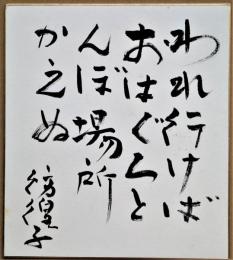 われ行けば
おはぐろと
んぼ場所
かえぬ
彷徨子